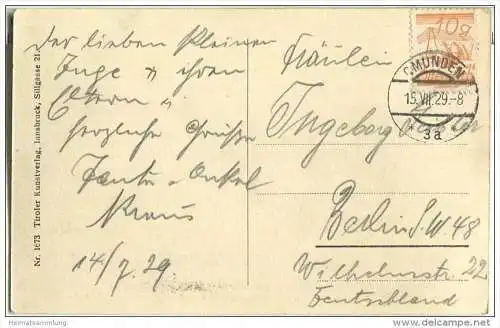 Der lieben kleinen
Inge u ihren
Eltern
herzliche Grüsse
Tante u Onkel
Kraus
14/7.29
Nr. 1673 Tiroler Kunstverlag, Innsbruck, Sillgasse 21
10g
GMUNDEN
15.VII.29.-8
* 3a *
Fräulein
Ingeborg
Berlin S.W 48
Wilhelmstr. 22
Deutschland
Heimatsammlung
oldthing.de